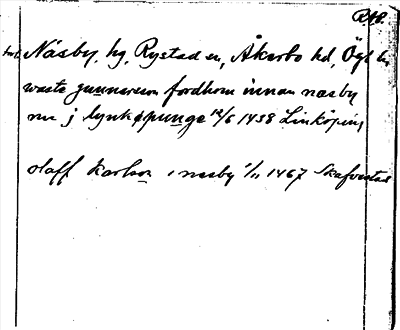 RAP.
Näsby, hg, Rystad sn, Åkerbo hd, Ögl
waste gunnarson fordhom innan næsby
nu j lynkøpunge 12/6 1438 Linköping
olaff karlson i nasby 1/11 1467 Skafvestad